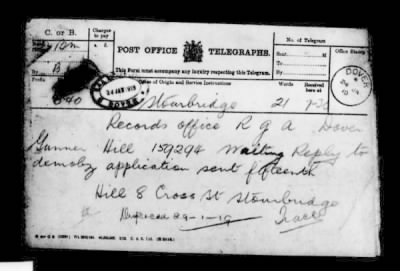 C. or B.
Charges to pay
s. d.
POST OFFICE TELEGRAPHS.
No. of Telegram
Office Stamp
This Form must accompany any inquiry respecting this Telegram.
Office of Origin and Service Instructions
Words
Received here at
By
B
DOVER
24 JAN 1919
DOVER
Stourbridge
21
Records office R G A Dover
Gunner Hill 159294 Waiting Reply to
demob application sent fifteenth
Hill 8 Cross St Stourbridge
29-1-19